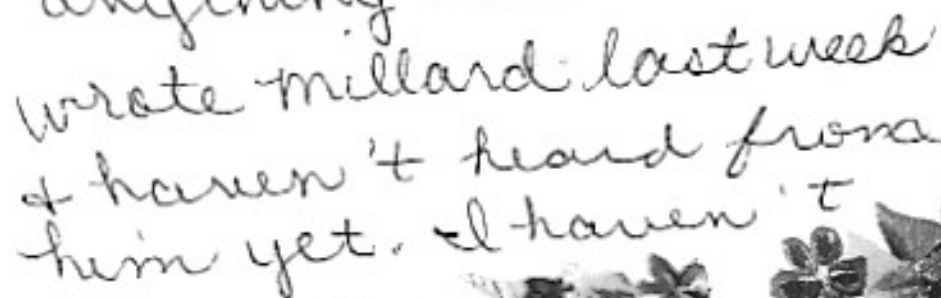 anything
wrote Millard last week
& haven't heard from
him yet. I haven't